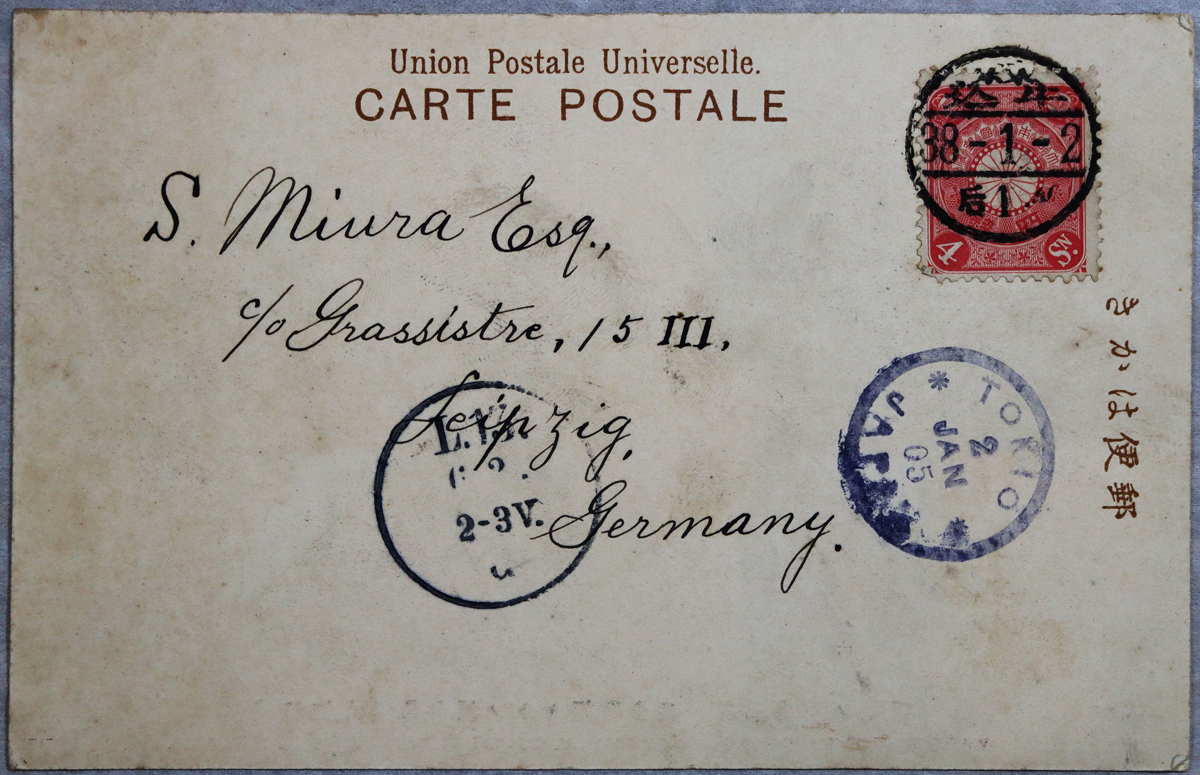 Union Postale Universelle.
CARTE POSTALE
S. Miura Esq.,
c/o Grassistre, 15 III.
Leipzig,
Germany.
38-1-2
后1
4 Sn.
きかは便郵
TOKIO
2
JAN
05
JAPAN
2-3V.